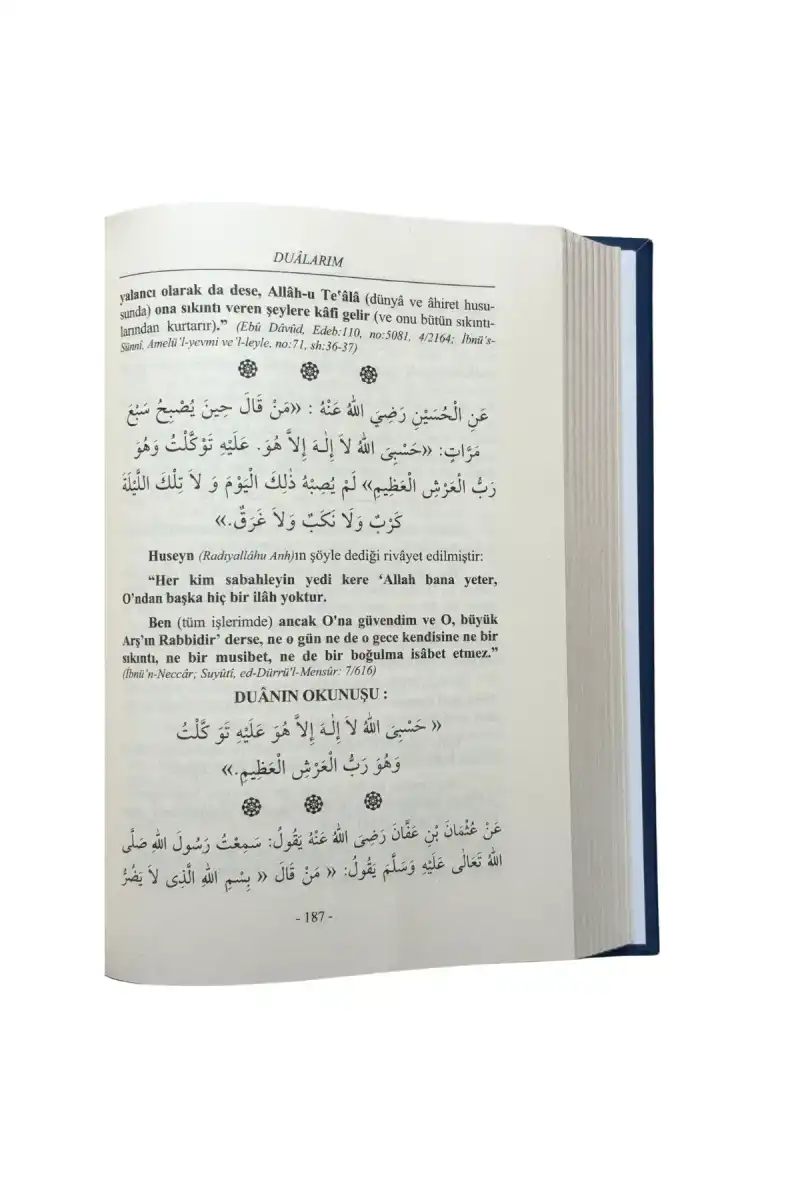 DUÂLARIM
yalancı olarak da dese, Allâh-u Te'âlâ (dünyâ ve âhiret husu-
sunda) ona sıkıntı veren şeylere kâfi gelir (ve onu bütün sıkıntı-
larından kurtarır).” (Ebû Dâvûd, Edeb:110, no:5081, 4/2164; İbnü's-
Sünnî, Amelü'l-yevmi ve'l-leyle, no:71, sh:36-37)
عَنِ الْحُسَيْنِ رَضِيَ اللّٰهُ عَنْهُ : «مَنْ قَالَ حِينَ يُصْبِحُ سَبْعَ
مَرَّاتٍ: «حَسْبِىَ اللّٰهُ لاَ إِلٰـهَ إِلاَّ هُوَ. عَلَيْهِ تَوَكَّلْتُ وَهُوَ
رَبُّ الْعَرْشِ الْعَظِيمِ» لَمْ يُصِبْهُ ذٰلِكَ الْيَوْمَ وَ لاَ تِلْكَ اللَّيْلَةَ
كَرْبٌ وَلَا نَكَبٌ وَلاَ غَرَقٌ.»
Huseyn (Radıyallâhu Anh)ın şöyle dediği rivâyet edilmiştir:
“Her kim sabahleyin yedi kere ‘Allah bana yeter,
O'ndan başka hiç bir ilâh yoktur.
Ben (tüm işlerimde) ancak O'na güvendim ve O, büyük
Arş'ın Rabbidir’ derse, ne o gün ne de o gece kendisine ne bir
sıkıntı, ne bir musibet, ne de bir boğulma isâbet etmez.”
(İbnü'n-Neccâr; Suyûtî, ed-Dürrü'l-Mensûr: 7/616)
DUÂNIN OKUNUŞU :
« حَسْبِىَ اللّٰهُ لاَ إِلٰـهَ إِلاَّ هُوَ عَلَيْهِ تَوَ كَّلْتُ
وَهُوَ رَبُّ الْعَرْشِ الْعَظِيمِ.»
عَنْ عُثْمَانَ بْنِ عَفَّانَ رَضِىَ اللّٰهُ عَنْهُ يَقُولُ: سَمِعْتُ رَسُولَ اللّٰهِ صَلَّى
اللّٰهُ تَعَالٰى عَلَيْهِ وَسَلَّمَ يَقُولُ: « مَنْ قَالَ « بِسْمِ اللّٰهِ الَّذِى لاَ يَضُرُّ
- 187 -